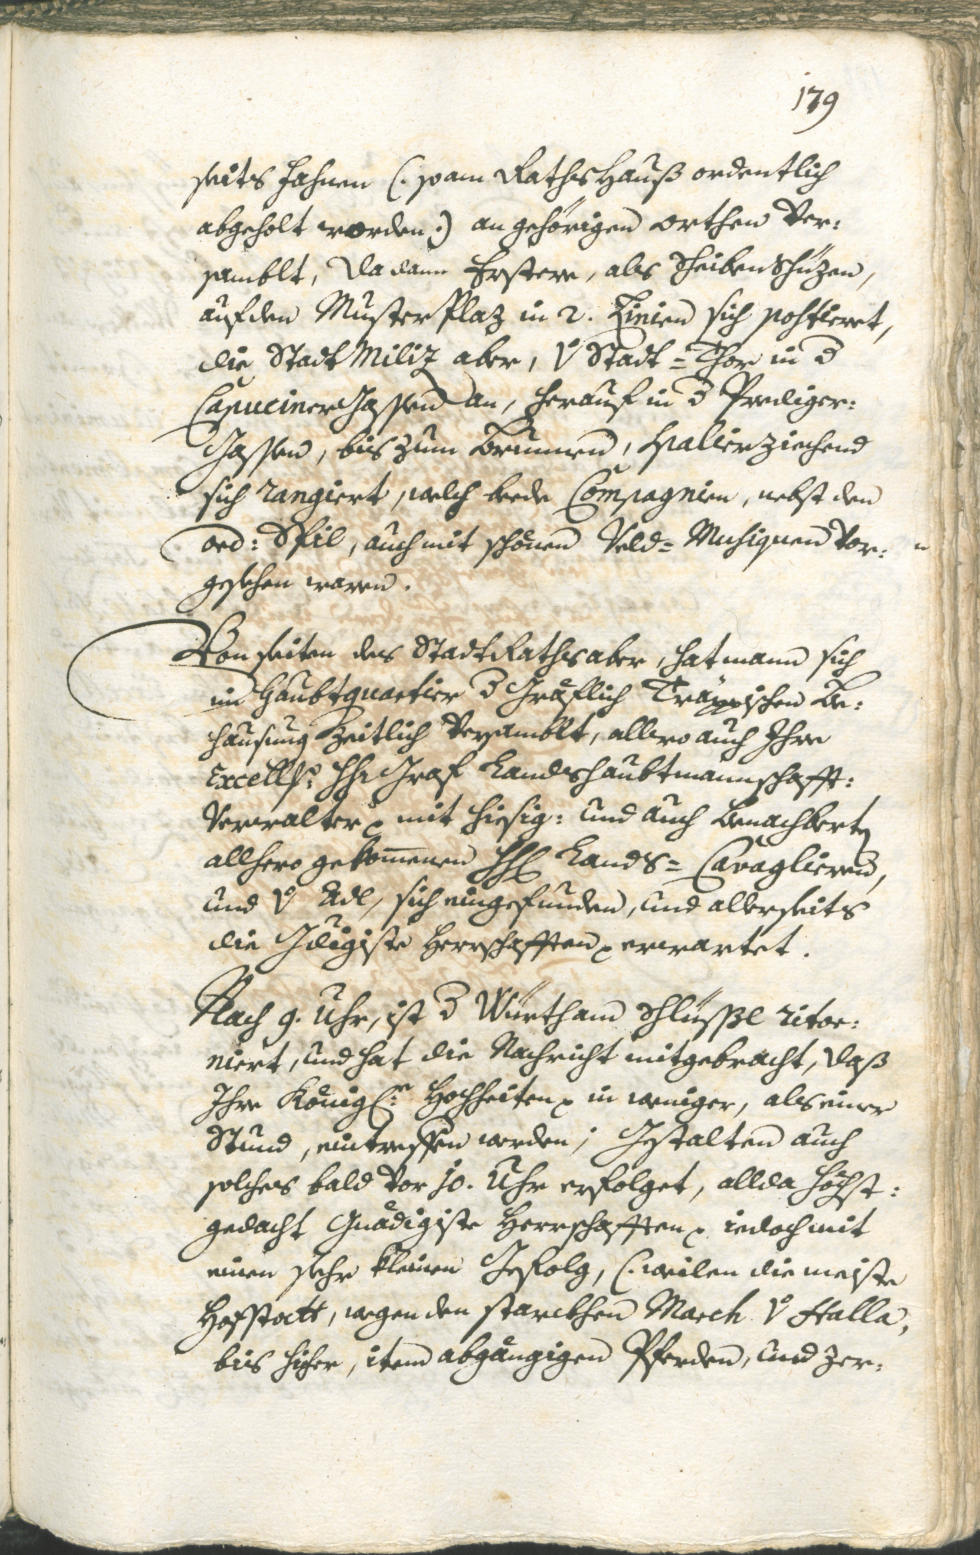 179
seits Fahnen (: so am RathsHauß ordentlich
abgeholt worden :) an gehörigen orthen Ver:
samblt, da dann Erstere, als ScheibenSchüzen,
auf den Muster Plaz in 2. Linien sich postieret,
die Stadt Miliz aber, V Stadt = Thor in d
Capuciner Gassen an, herauf in d Prediger:
Gassen, bis zum Brunnen, spalier ziechend
sich rangiert, welch beede Compagnien, nebst den
ord: Spil, auch mit schönen Veld = Musiquen Vor:
gesehen waren.
Von seiten des Stadt Raths aber, hat mann sich
im Haubtquartier d Gräflich Trappischen Be:
hausung Zeitlich Versamblt, allwo auch Ihre
Excell: HH: Graf Landshaubtmannschafft:
Verwalter mit hiesig: und auch benachbert
allhero gekommenen HH Lands = Cavaglieren,
und V Adl, sich eingefunden, und allerseits
die Gdigiste Herrschafften erwartet.
Nach 9. Uhr, ist d Würth am Schlüssl ritor:
niert, und hat die Nachricht mitgebracht, daß
Ihre Königl: Hochheiten in weniger, als einer
Stund, eintreffen werden; Gestalten auch
solches bald Vor 10. Uhr erfolget, allda höchst:
gedacht Gnädigiste Herrschafften jedoch mit
einen sehr kleinen Gefolg, (: weilen die meiste
Hofstatt, wegen den starckhen March V Halla,
bis hieher, item abgängigen Pferden, und Zer: